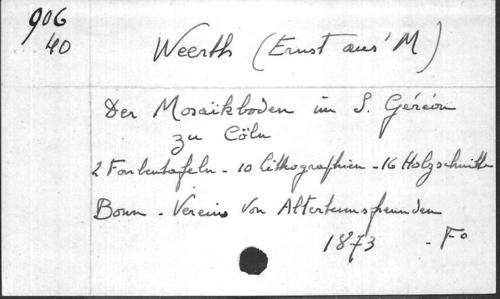 906
40
Weerth (Ernst aus' M)
Der Mosaïkboden im S. Géréon
zu Cöln
2 Farbentafeln - 10 lithographien - 16 Holzschnitte
Bonn - Vereins von Altertumsfreunden
1873 - F°